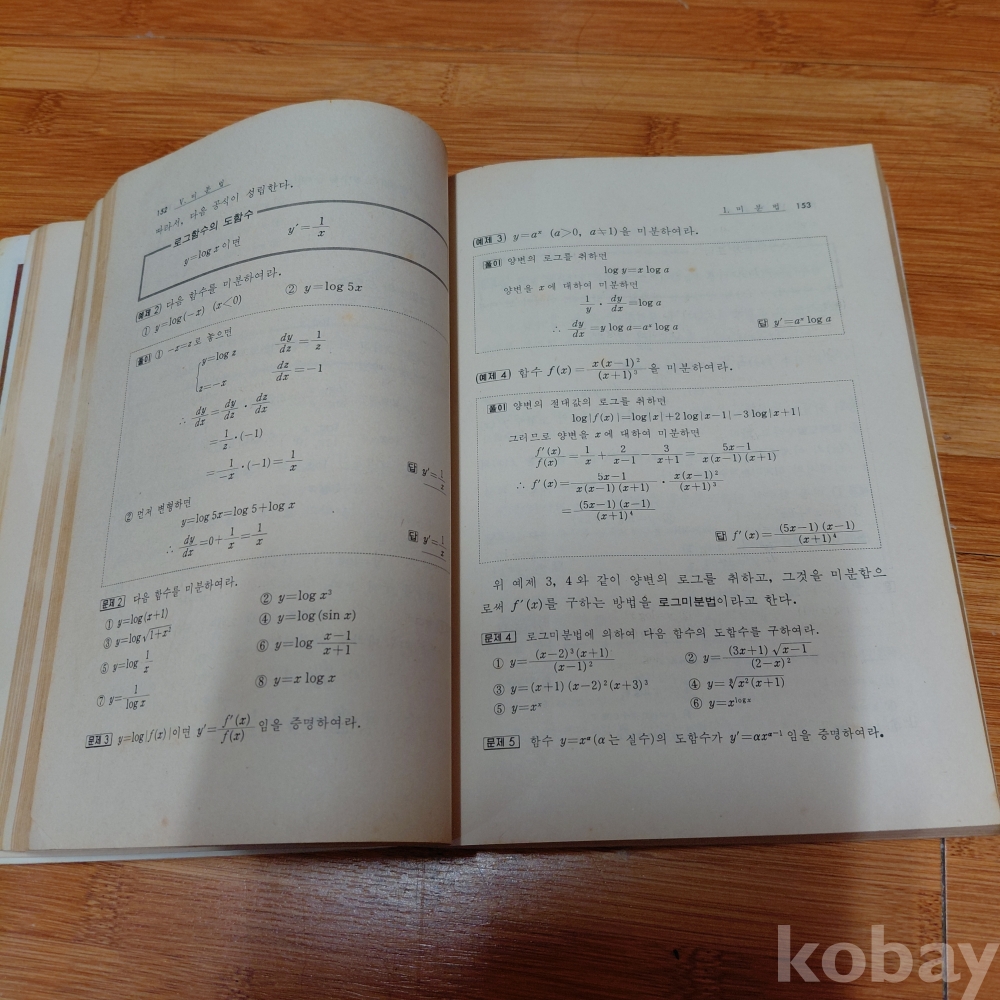 152 V. 미 분 법
따라서, 다음 공식이 성립한다.
로그함수의 도함수
y=log x 이면 y′=1/x
예제 2 다음 함수를 미분하여라.
① y=log(−x) (x<0) ② y=log 5x
풀이 ① −x=z로 놓으면
y=log z dy/dz=1/z
z=−x dz/dx=−1
∴ dy/dx=dy/dz·dz/dx
=1/z·(−1)
=1/−x·(−1)=1/x 답 y′=1/x
② 먼저 변형하면
y=log 5x=log 5+log x
∴ dy/dx=0+1/x=1/x 답 y′=1/x
문제 2 다음 함수를 미분하여라.
① y=log(x+1) ② y=log x³
③ y=log√(1+x²) ④ y=log(sin x)
⑤ y=log 1/x ⑥ y=log (x−1)/(x+1)
⑦ y=1/log x ⑧ y=x log x
문제 3 y=log|f(x)|이면 y′=f′(x)/f(x) 임을 증명하여라.
1. 미 분 법 153
예제 3 y=aˣ (a>0, a≒1)을 미분하여라.
풀이 양변의 로그를 취하면
log y=x log a
양변을 x에 대하여 미분하면
1/y·dy/dx=log a
∴ dy/dx=y log a=aˣ log a 답 y′=aˣ log a
예제 4 함수 f(x)=x(x−1)²/(x+1)³ 을 미분하여라.
풀이 양변의 절대값의 로그를 취하면
log|f(x)|=log|x|+2log|x−1|−3log|x+1|
그러므로 양변을 x에 대하여 미분하면
f′(x)/f(x)=1/x+2/(x−1)−3/(x+1)=(5x−1)/x(x−1)(x+1)
∴ f′(x)=(5x−1)/x(x−1)(x+1)·x(x−1)²/(x+1)³
=(5x−1)(x−1)/(x+1)⁴
답 f′(x)=(5x−1)(x−1)/(x+1)⁴
위 예제 3, 4와 같이 양변의 로그를 취하고, 그것을 미분함으
로써 f′(x)를 구하는 방법을 로그미분법이라고 한다.
문제 4 로그미분법에 의하여 다음 함수의 도함수를 구하여라.
① y=(x−2)³(x+1)/(x−1)² ② y=(3x+1)√(x−1)/(2−x)²
③ y=(x+1)(x−2)²(x+3)³ ④ y=∛(x²(x+1))
⑤ y=xˣ ⑥ y=x^(log x)
문제 5 함수 y=x^α(α는 실수)의 도함수가 y′=αx^(α−1)임을 증명하여라.
kobay